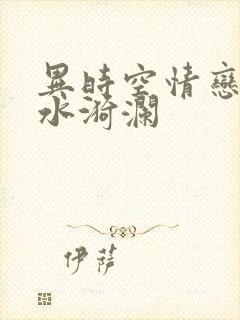 異時空情戀
水漪瀾
伊薩